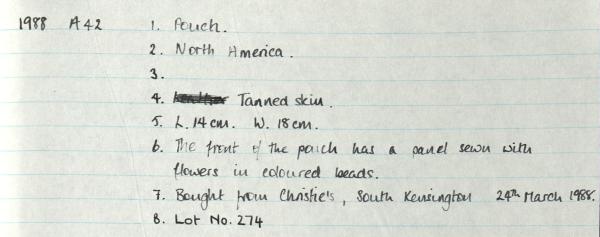 1988 A42 1. Pouch.
2. North America.
3.
4. Tanned skin.
5. L. 14cm. W. 18cm.
6. The front of the pouch has a panel sewn with
flowers in coloured beads.
7. Bought from Christie's, South Kensington 24th March 1988.
8. Lot No. 274